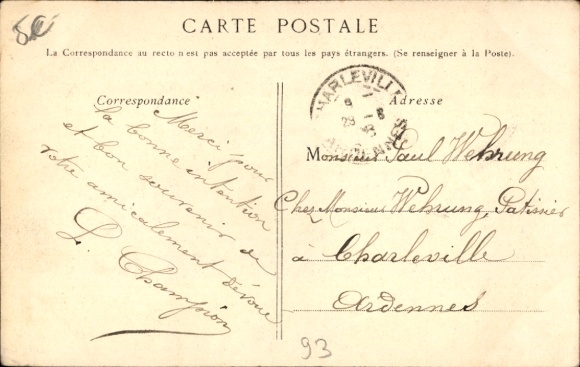 CARTE POSTALE
La Correspondance au recto n'est pas acceptée par tous les pays étrangers. (Se renseigner à la Poste).
Correspondance
Merci pour
la bonne intention
et bon souvenir de
votre amicalement dévoué
L. Champion
CHARLEVILLE
ARDENNES
Adresse
Monsieur Paul Wehrung
Chez Monsieur Wehrung, Patissier
à Charleville
Ardennes
93